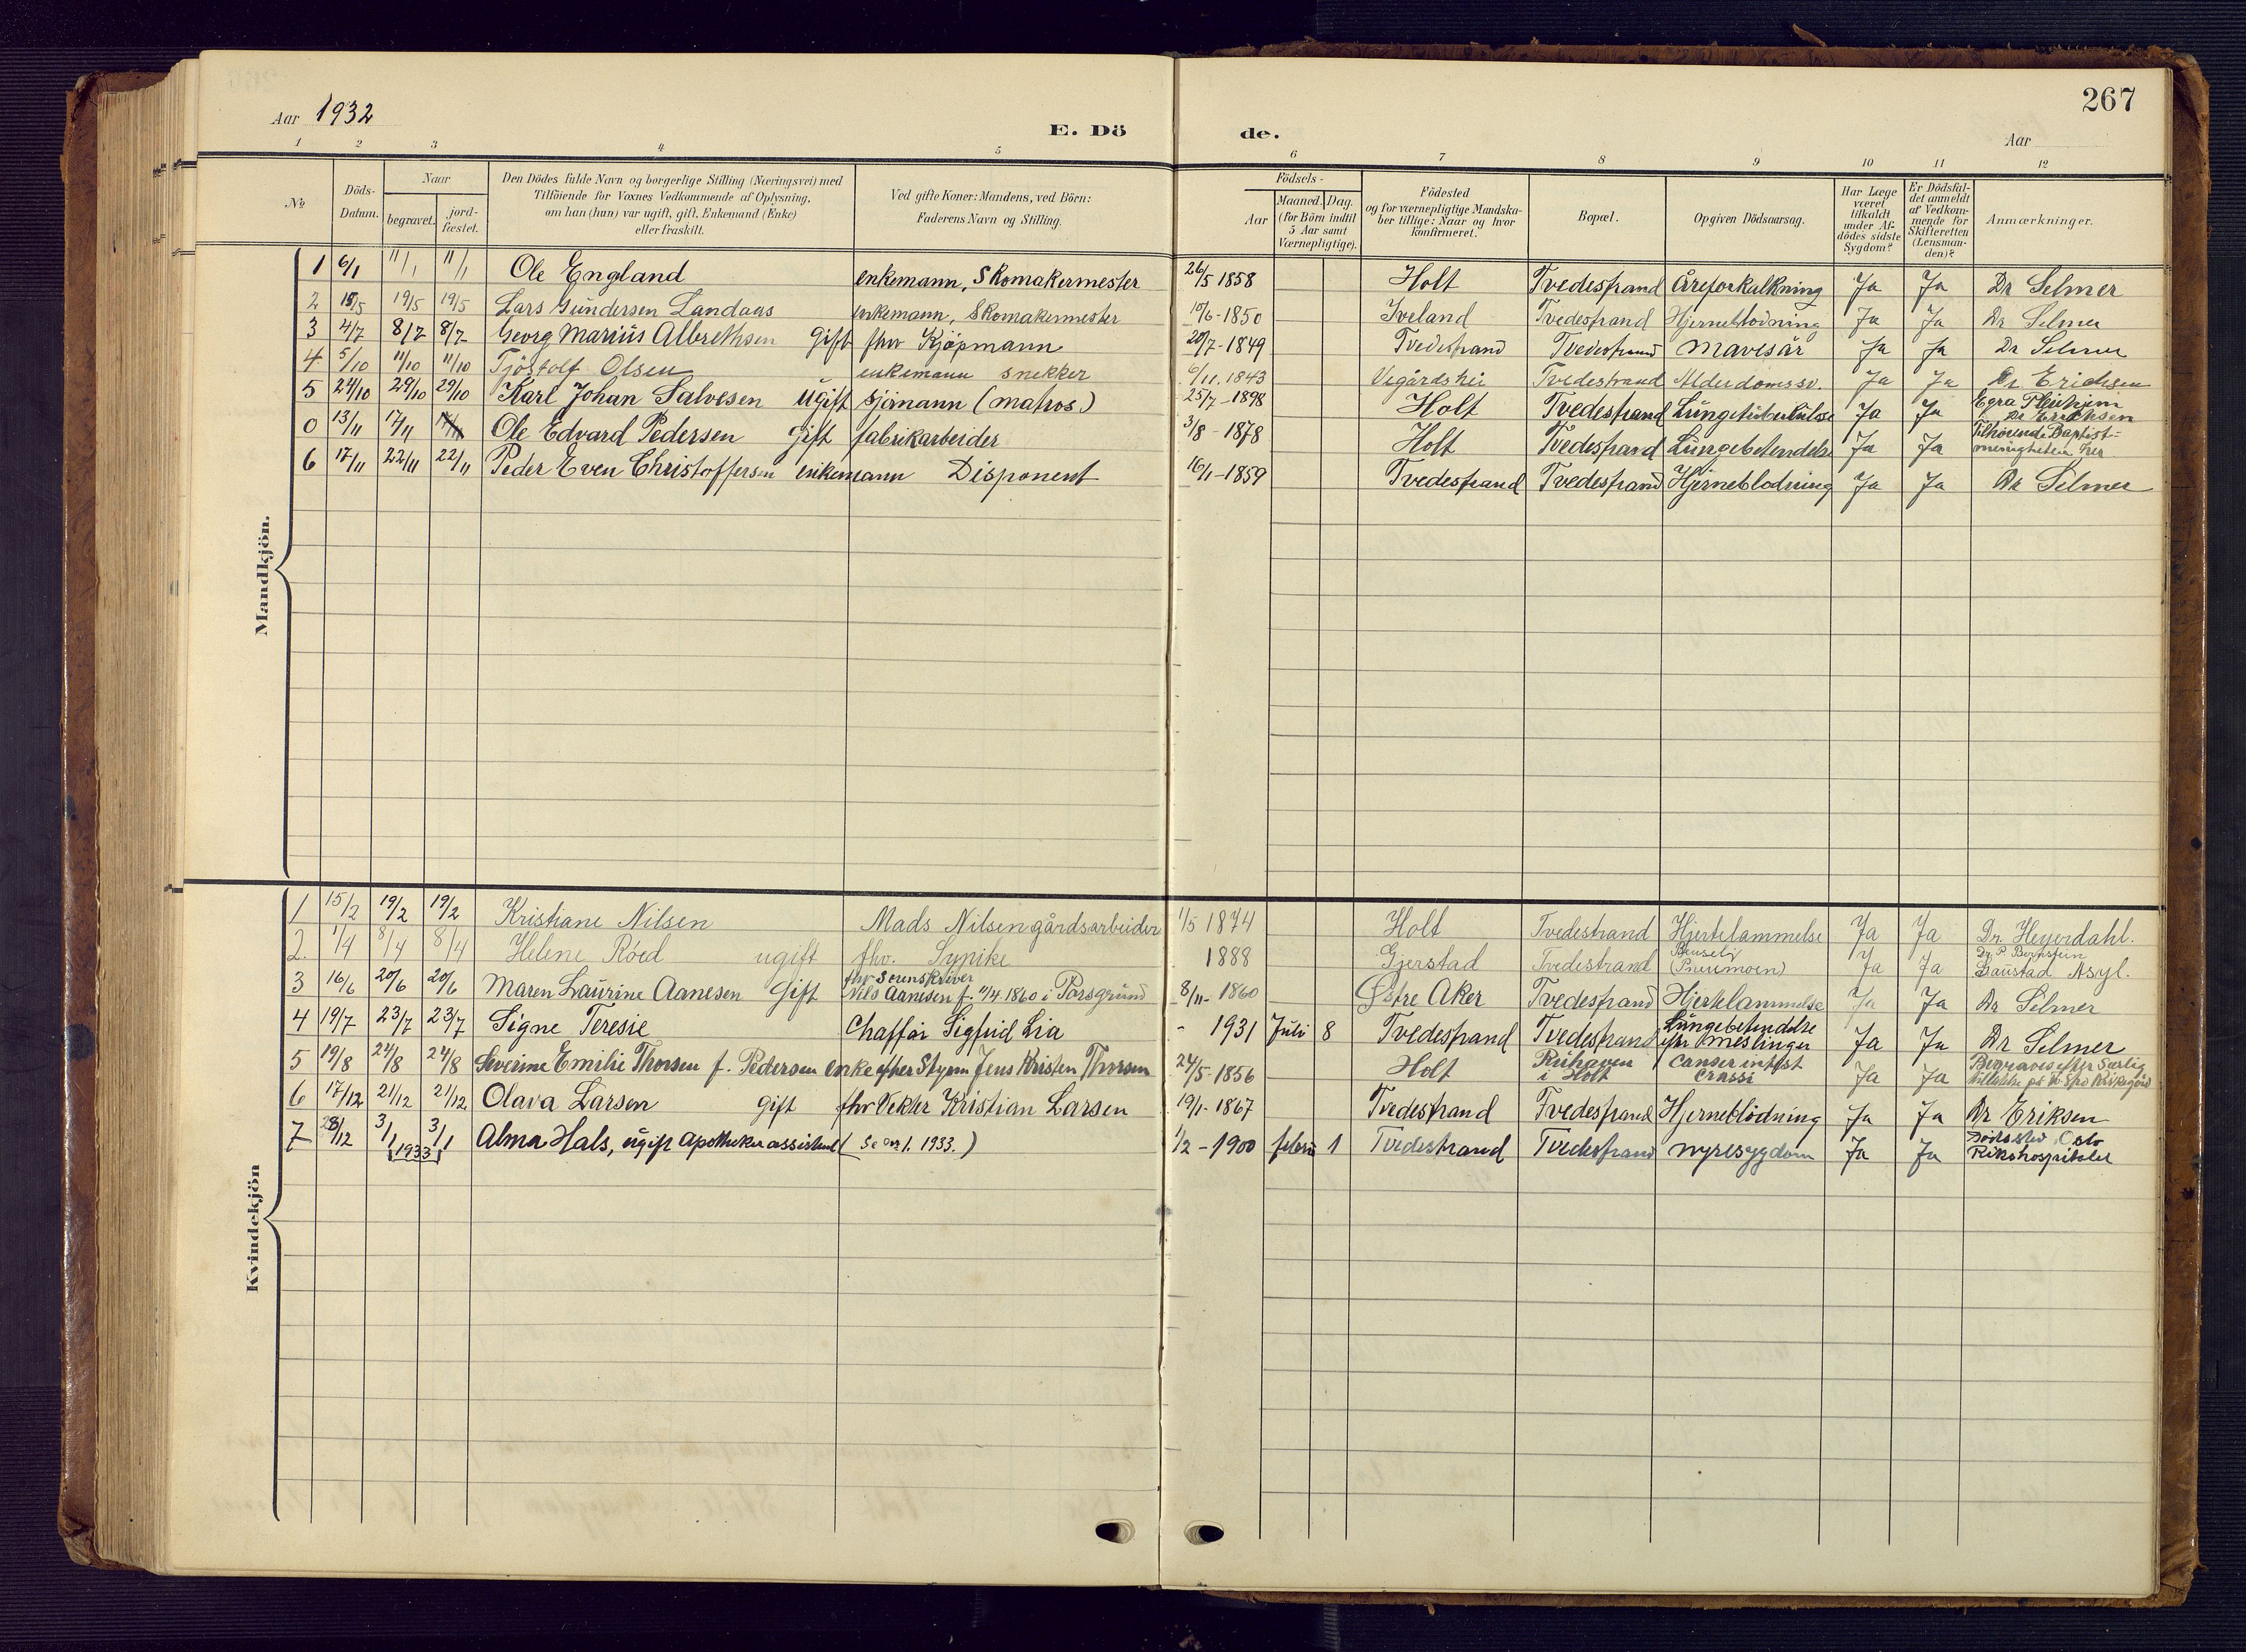 267
Aar 1932
E. Dö de.
Aar
1 2 3 4 5 6 7 8 9 10 11 12
№
Döds-Datum.
Naar
begravet.
jord-fæstet.
Den Dödes fulde Navn og borgerlige Stilling (Næringsvei) med
Tilföiende for Voxnes Vedkommende af Oplysning,
om han (hun) var ugift, gift, Enkemand (Enke)
eller fraskilt.
Ved gifte Koner: Mandens, ved Börn:
Faderens Navn og Stilling.
Födsels-
Aar
Maaned. Dag.
(for Börn indtil
5 Aar samt
Værnepligtige).
Födested
og for værnepligtige Mandska-
ber tillige: Naar og hvor
konfirmeret.
Bopæl.
Opgiven Dödsaarsag.
Har Læge
været
tilkaldt
under Af-
dödes sidste
Sygdom?
Er Dödsfal-
det anmeldt
af Vedkom-
mende for
Skifteretten
(Lensman-
den)?
Anmærkninger.
Mandkjön.
1 6/1 11/1 11/1 Ole England enkemann, Skomakermester 26/5 1858 Holt Tvedestrand Åreforkalkning Ja Ja Dr Selmer
2 15/5 19/5 19/5 Lars Gundersen Landaas enkemann, Skomakermester 10/6-1850 Iveland Tvedestrand Hjerneblodning Ja Ja Dr Selmer
3 4/7 8/7 8/7 Georg Marius Albrethsen Gift fhv Kjöpmann 20/7-1849 Tvedestrand Tvedestrand Mavesår Ja Ja Dr Selmer
4 5/10 11/10 11/10 Tjöstolf Olsen enkemann snekker 6/11.1843 Vegårdshei Tvedestrand Alderdomssv. Ja Ja Dr Erichsen
5 24/10 29/10 29/10 Karl Johan Salvesen Ugift Sjömann (matros) 25/7-1898 Holt Tvedestrand Lungetuberkulose Ja Ja Egra Pleiehjem
Dr Erichsen
0 13/11 17/11 17/11 Ole Edvard Pedersen gift fabrikarbeider 3/8-1878 Holt Tvedestrand Lungebetendelse Ja Ja Tilhörende Baptist-
menigheten her
6 17/11 22/11 22/11 Peder Even Christoffersen enkemann Disponent 16/1-1859 Tvedestrand Tvedestrand Hjerneblodning Ja Ja Dr Selmer
Kvindekjön
1 15/2 19/2 19/2 Kristiane Nilsen Mads Nilsen gårdsarbeider 1/5 1874 Holt Tvedestrand Hjertelammelse Ja Ja Dr. Heyerdahl.
2. 1/4 8/4 8/4 Helene Röed ugift fhv. Sypike 1888 Gjerstad Tvedestrand (Pneumoen) Ja Ja Asyl.
3 16/6 20/6 20/6 Maren Laurine Aanesen Gift fhv Sorenskriver
Nils Aanesen f. 1/4 1860 i Porsgrund 8/11-1860 Østre Aker Tvedestrand Hjertelammelse Ja Ja Dr Selmer
4 19/7 23/7 23/7 Signe Teresie Chaffør Sigfrid Lia - 1931 Juli 8 Tvedestrand Tvedestrand Lungebetendelse
efter meslinger Ja Ja Dr Selmer
5 19/8 24/8 24/8 Severine Emilie Thorsen f. Pedersen enke efter Styrm Jens Kristen Thorsen 24/5-1856 Holt i Holt Cancer intest
crassi Ja Ja Begraves efter særlig
6 17/12 21/12 21/12 Olava Larsen gift fhv Vekter Kristian Larsen 19/1-1867 Tvedestrand Tvedestrand Hjerneblödning Ja Ja Dr Eriksen
7 28/12 3/1 3/1 1933 Alma Hals, ugift Apotheker assistent (Se No 1. 1933.) 1/2-1900 februar 1 Tvedestrand Tvedestrand nyresygdom Ja Ja Dödssted Oslo
Rikshospitalet